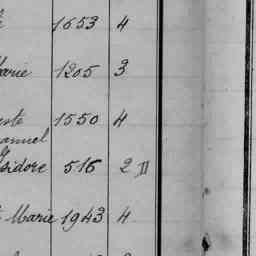 1653 4
Marie 1205 3
1550 4
Isidore 516 2 II
Marie 1943 4